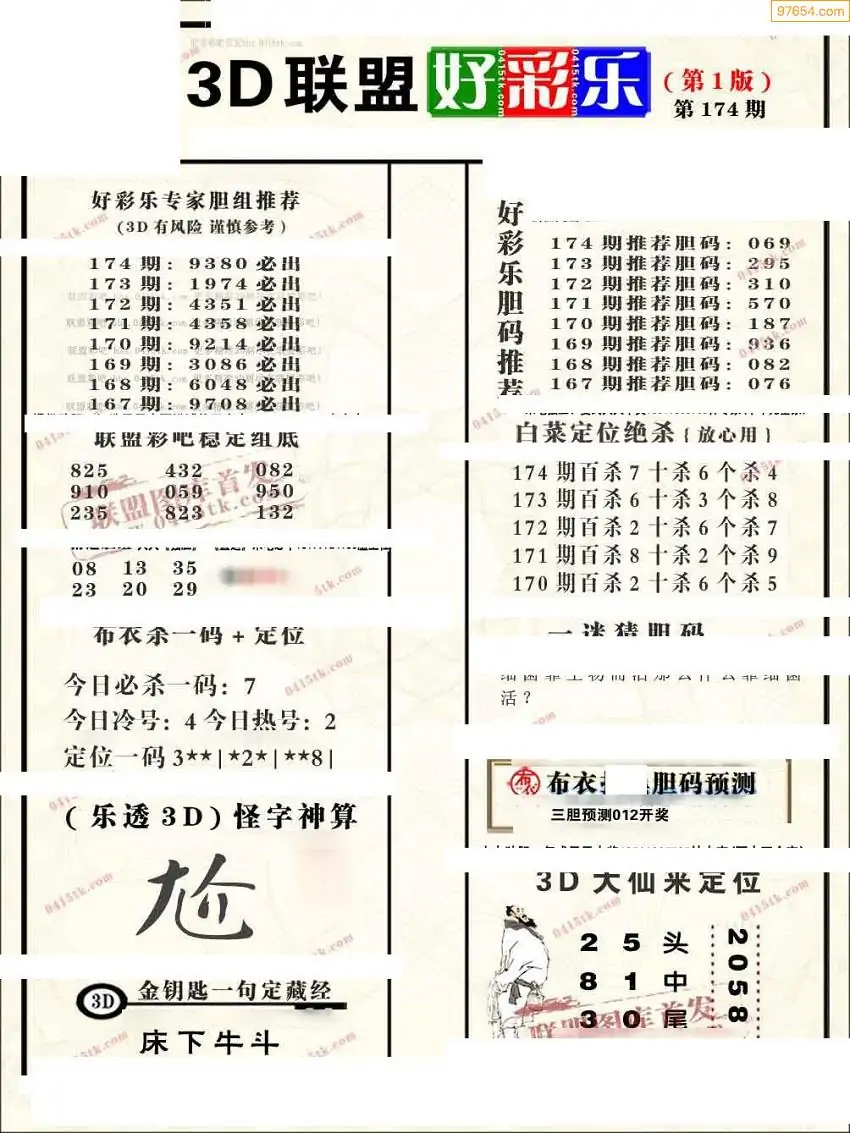 97654.com
3D 联盟 好彩乐 (第1版)
第 174 期
好彩乐专家胆组推荐
(3D 有风险 谨慎参考)
174 期: 9380 必出
173 期: 1974 必出
172 期: 4351 必出
171 期: 4358 必出
170 期: 9214 必出
169 期: 3086 必出
168 期: 6048 必出
167 期: 9708 必出
联盟彩吧稳定组底
825 432 082
910 059 950
235 823 132
联盟图库首发
0415tk.com
08 13 35
23 20 29
布衣杀一码 + 定位
今日必杀一码: 7
今日冷号: 4 今日热号: 2
定位一码 3**|*2*|**8|
(乐透 3D) 怪字神算
尬
3D 金钥匙一句定藏经
床下牛斗
好彩乐胆码推荐
174 期推荐胆码: 069
173 期推荐胆码: 295
172 期推荐胆码: 310
171 期推荐胆码: 570
170 期推荐胆码: 187
169 期推荐胆码: 936
168 期推荐胆码: 082
167 期推荐胆码: 076
白菜定位绝杀 { 放心用 }
174 期百杀 7 十杀 6 个杀 4
173 期百杀 6 十杀 3 个杀 8
172 期百杀 2 十杀 6 个杀 7
171 期百杀 8 十杀 2 个杀 9
170 期百杀 2 十杀 6 个杀 5
一迷猜胆码
活?
布衣 胆码预测
三胆预测012开奖
3D 大仙来定位
2 5 头
8 1 中
3 0 尾
2058
联盟图库首发